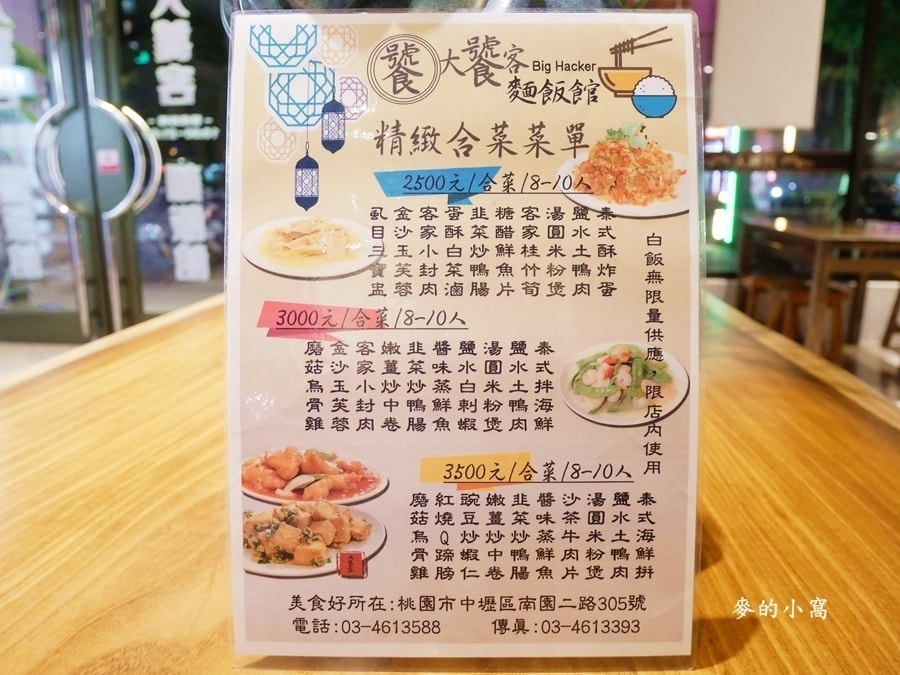 饕
大饕客
Big Hacker
麵飯館
精緻合菜菜單
2500元/合菜/8-10人
泰式酥炸蛋
鹽水土鴨肉
湯圓米粉煲
客家桂竹筍
糖醋鮮魚片
韭菜炒鴨腸
蛋酥白菜滷
客家小封肉
金沙玉芙蓉
虱目三寶盅
3000元/合菜/8-10人
泰式拌海鮮
鹽水土鴨肉
湯圓米粉煲
鹽水白刺蝦
醬味蒸鮮魚
韭菜炒鴨腸
嫩薑炒中卷
客家小封肉
金沙玉芙蓉
磨菇烏骨雞
3500元/合菜/8-10人
泰式海鮮拼
鹽水土鴨肉
湯圓米粉煲
沙茶牛肉片
醬味蒸鮮魚
韭菜炒鴨腸
嫩薑炒中卷
豌豆炒蝦仁
紅燒Q蹄膀
磨菇烏骨雞
白飯無限量供應，限店內使用
美食好所在:桃園市中壢區南園二路305號
電話:03-4613588 傳真:03-4613393
麥的小窩